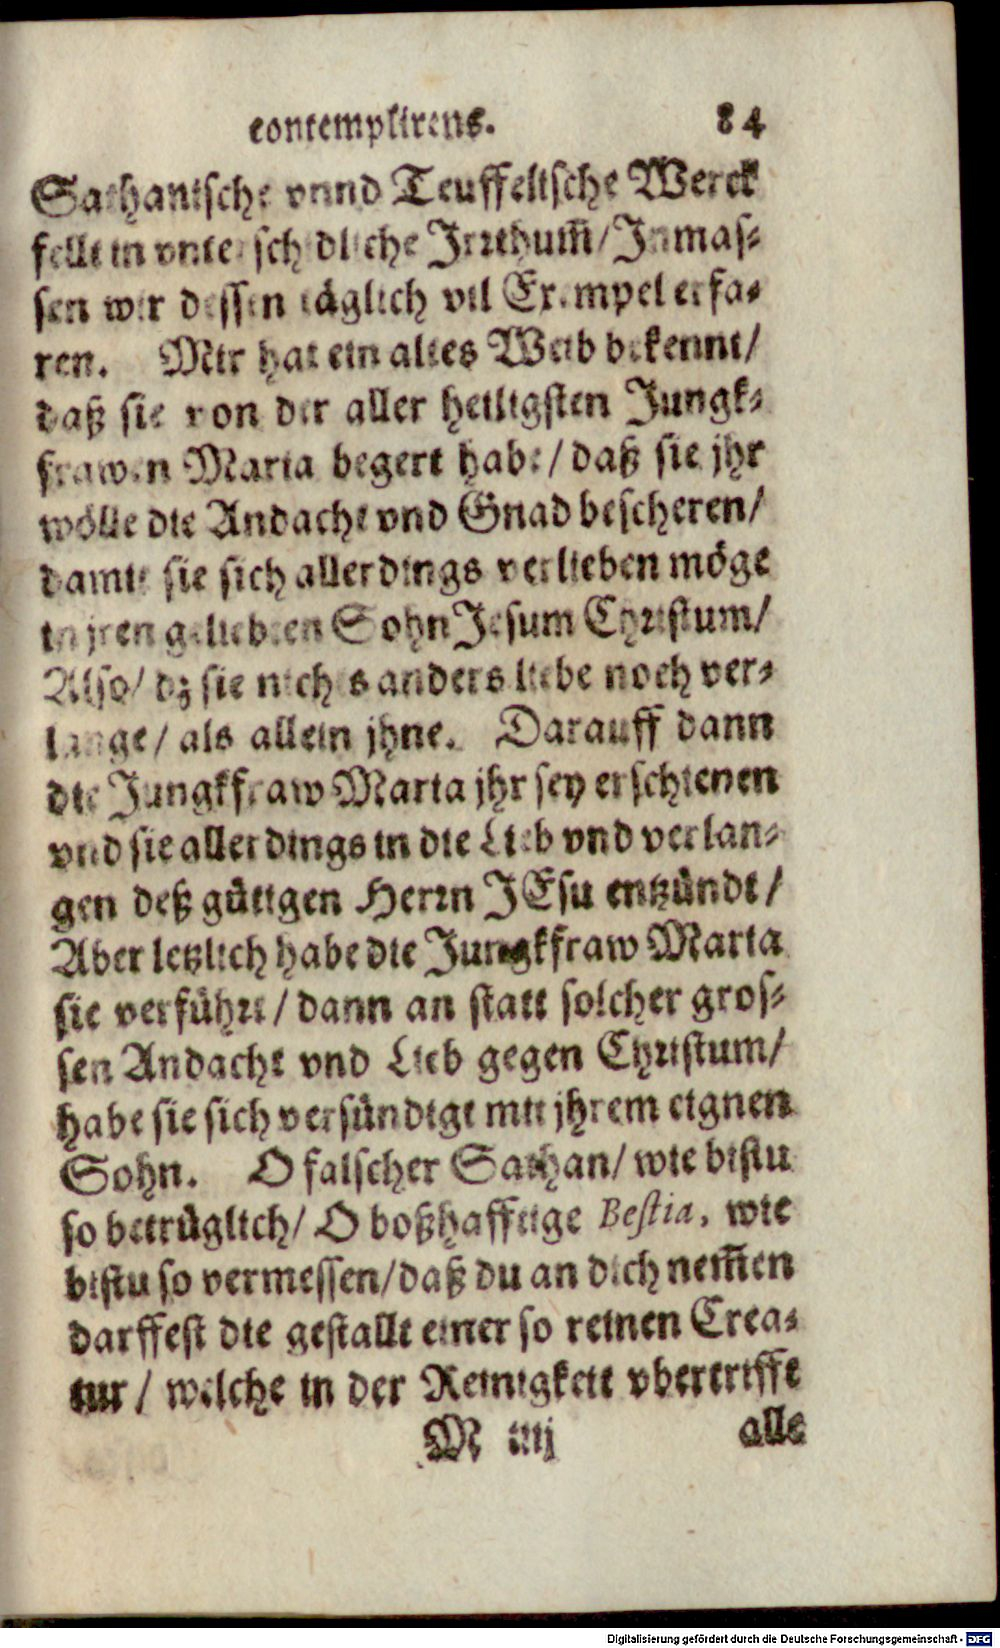 contemplirens. 84
Sathanische vnnd Teuffelische Werck
fellt in vnterschidliche Irrthum̃/ Inmas-
sen wir dessen täglich vil Exempel erfa-
ren. Mir hat ein altes Weib bekennt/
daß sie von der aller heiligsten Jungk-
frawen Maria begert habe/ daß sie jhr
wölle die Andacht vnd Gnad bescheren/
damit sie sich allerdings verlieben möge
in jren geliebten Sohn Jesum Christum/
Also/ dz sie nichts anders liebe noch ver-
lange/ als allein jhne. Darauff dann
die Jungkfraw Maria jhr sey erschienen
vnd sie allerdings in die Lieb vnd verlan-
gen deß gütigen Herrn JEsu entzündt/
Aber letzlich habe die Jungkfraw Maria
sie verführt/ dann an statt solcher gros-
sen Andacht vnd Lieb gegen Christum/
habe sie sich versündigt mit jhrem eignen
Sohn. O falscher Sathan/ wie bistu
so betrüglich/ O boßhafftige Bestia, wie
bistu so vermessen/ daß du an dich nem̃en
darffest die gestallt einer so reinen Crea-
tur/ welche in der Reinigkeit vbertrifft
M iiij alle
Digitalisierung gefördert durch die Deutsche Forschungsgemeinschaft - DFG